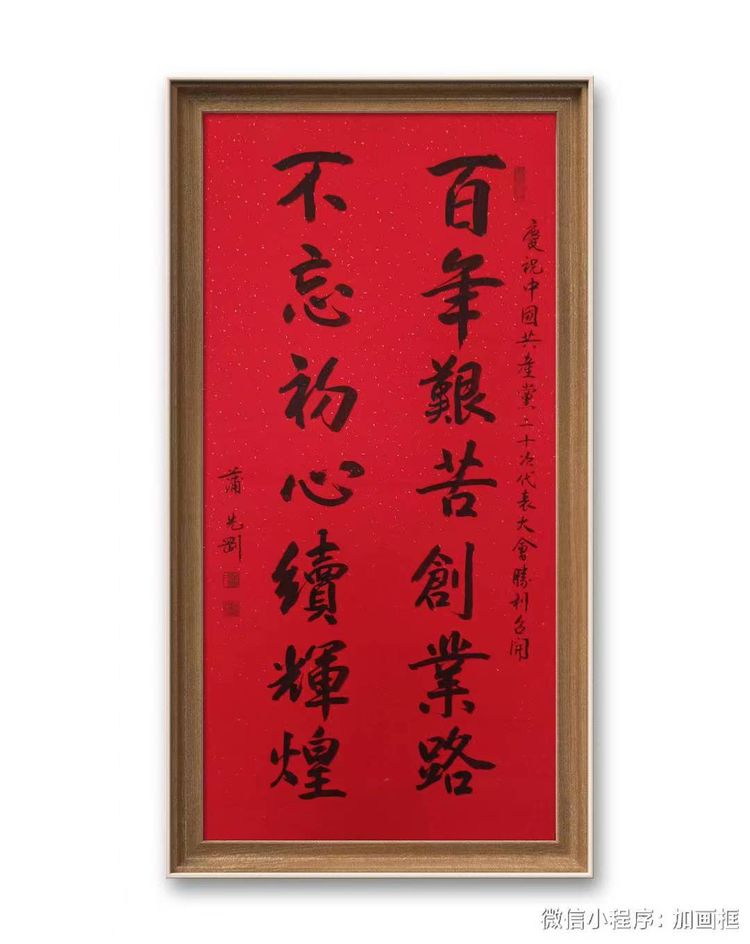 慶祝中國共產黨二十次代表大會勝利召開
百年艱苦創業路
不忘初心續輝煌
蒲先剛
微信小程序：加画框